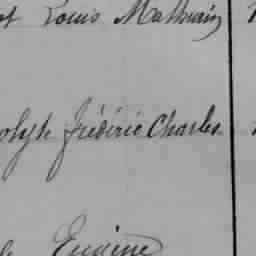 Louis Mathurin
olph Frédéric Charles
Eugène